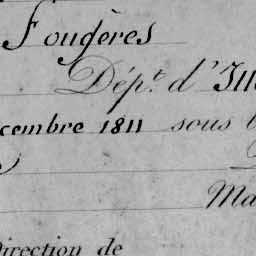 Fougères
Dépt. d'
cembre 1811 sous
Direction de